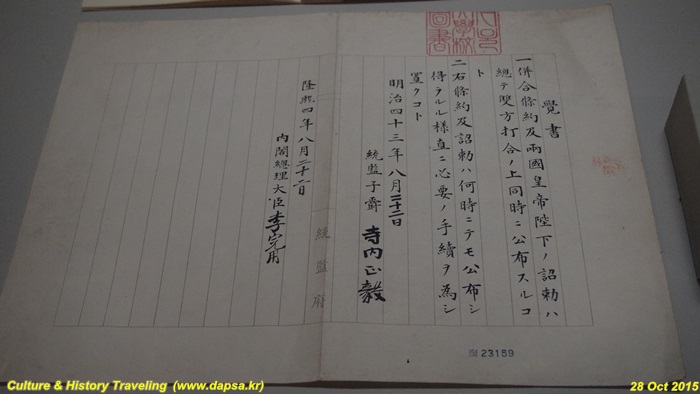 覺書
一併合條約及兩國皇帝陛下ノ詔勅ハ
總テ雙方打合ノ上同時ニ公布スルコ
ト
二右條約及詔勅ハ何時ニテモ公布シ
得ラルル樣直ニ必要ノ手續ヲ為シ
置クコト
明治四十三年八月二十二日
統監子爵 寺内正毅
統監府
隆熙四年八月二十二日
內閣總理大臣 李完用
23159
Culture & History Traveling (www.dapsa.kr)
28 Oct 2015